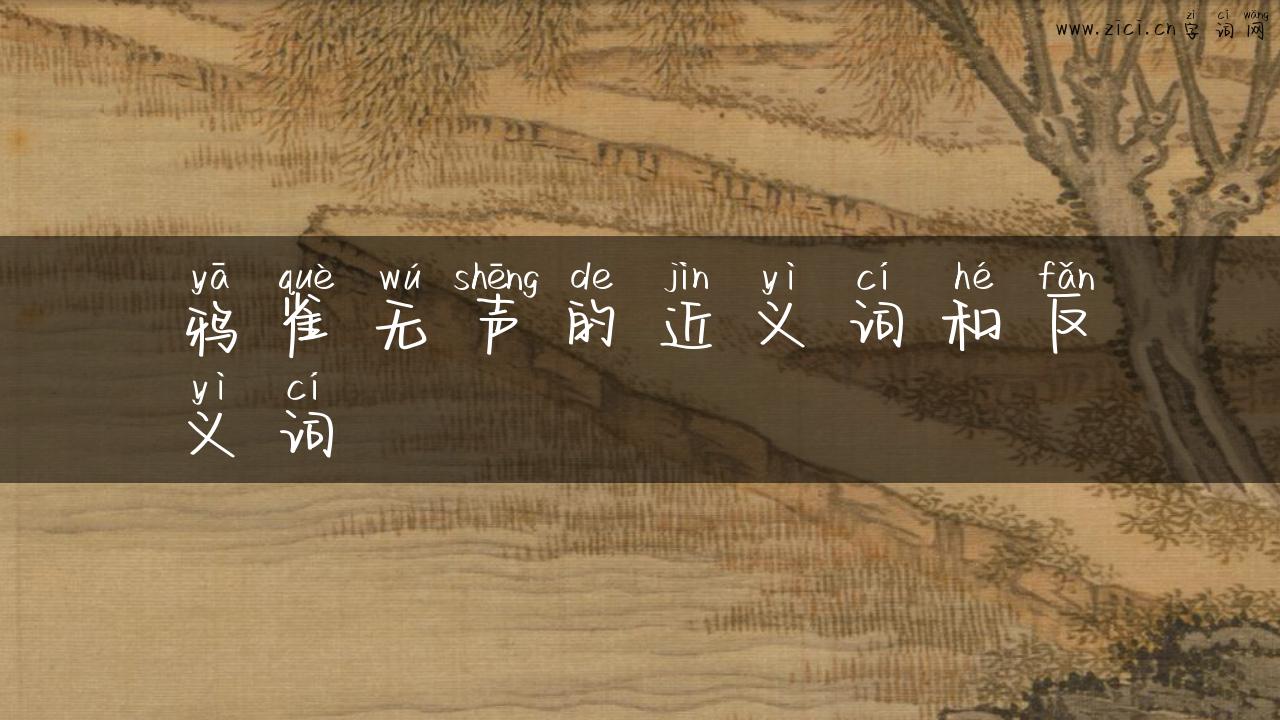 zì cí wǎng
www.zici.cn字词网
yā què wú shēng de jìn yì cí hé fǎn
鸦雀无声的近义词和反
yì cí
义词